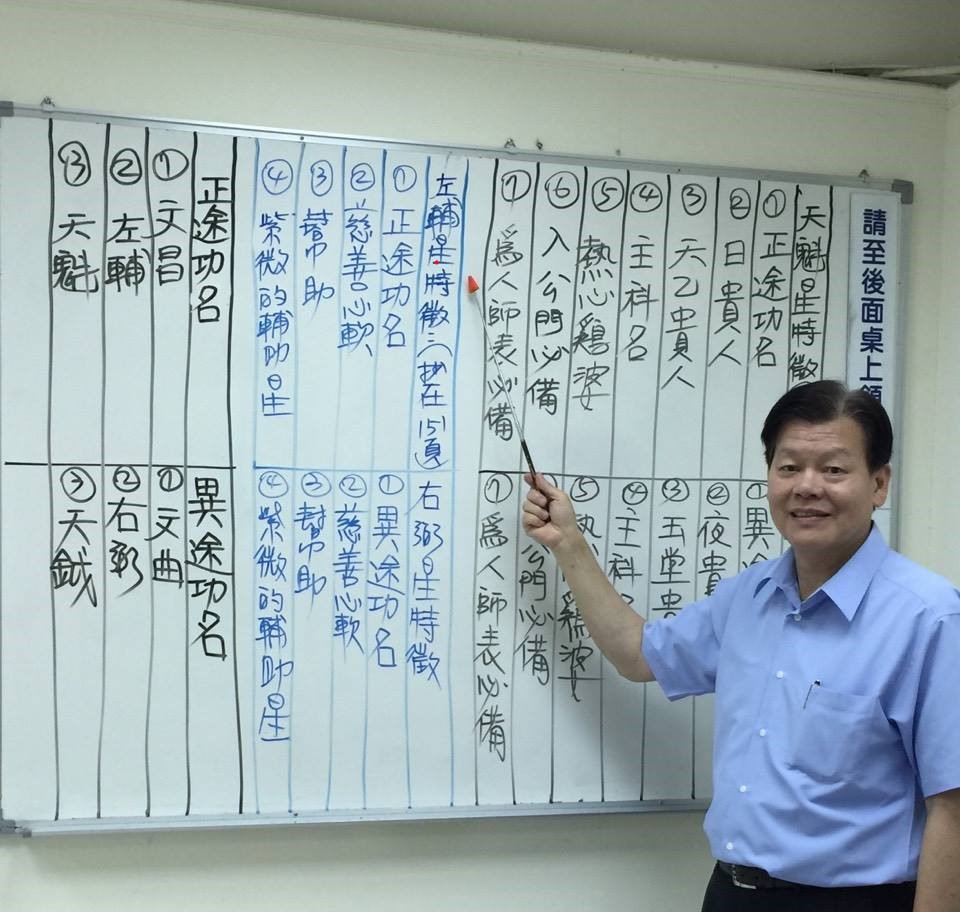 請至後面桌上領
天魁星特徵
①正途功名
②日貴人
③天乙貴人
④主科名
⑤熱心雞婆
⑥入公門必備
⑦為人師表必備
異
②夜貴
③玉堂貴
④主科
⑤熱 雞婆
公門必備
⑦為人師表必備
左輔星特徵 在151頁
①正途功名
②慈善心軟
③幫助
④紫微的輔助星
右弼星特徵
①異途功名
②慈善心軟
③幫助
④紫微的輔助星
正途功名
①文昌
②左輔
③天魁
異途功名
①文曲
②右弼
③天鉞